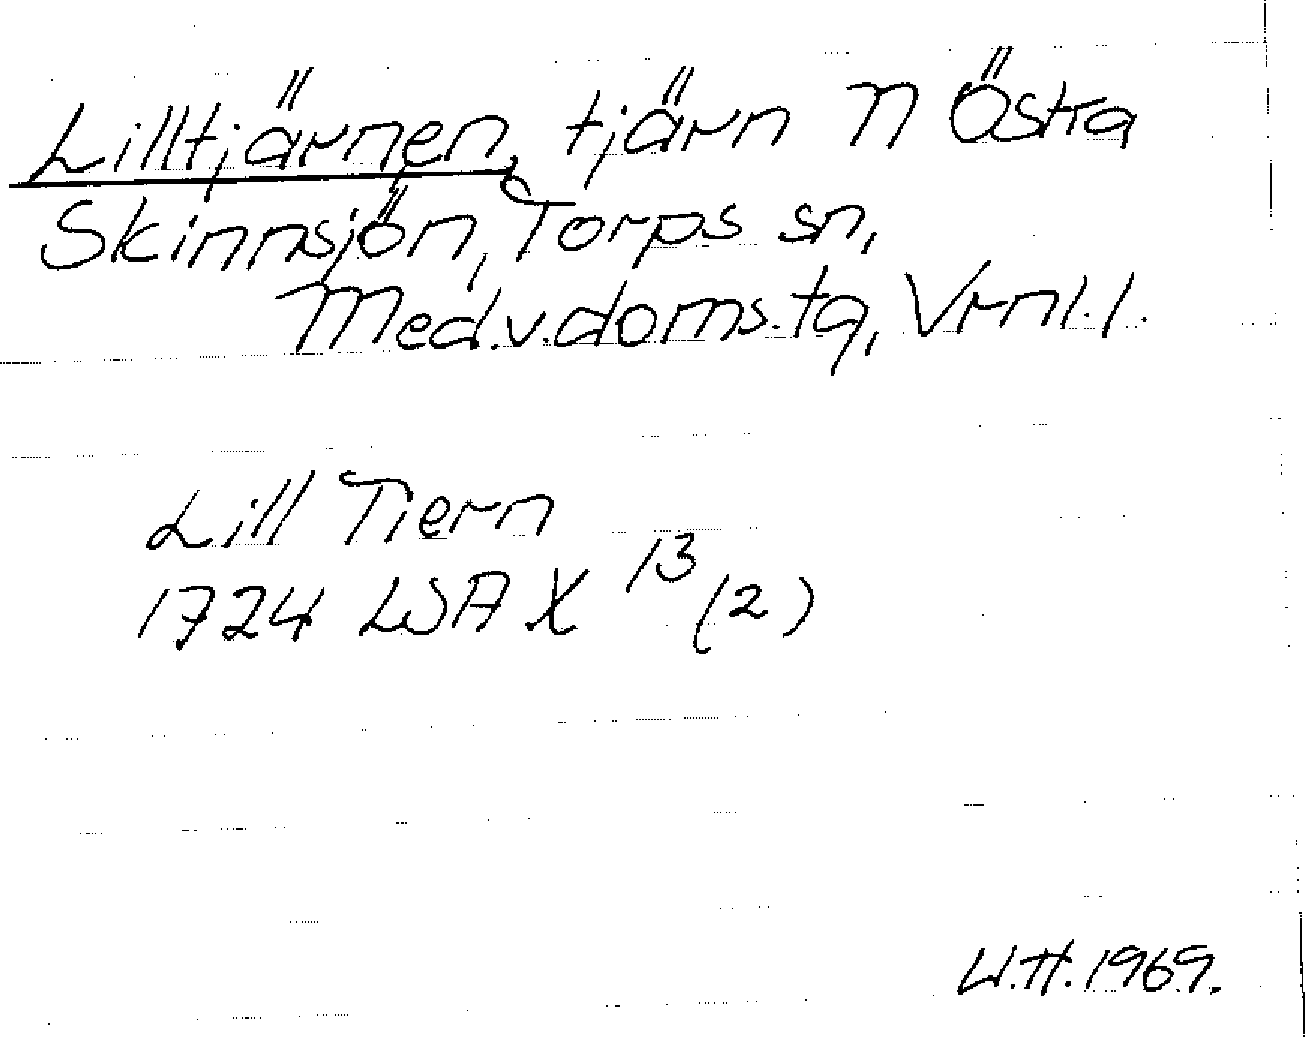 Lilltjärnen, tjärn n Östra
Skinnsjön, Torps sn,
Med.v.doms.tg, Vrnl.l.
Lill Tiern
1724 LSA X 13 (2)
W.H. 1969.